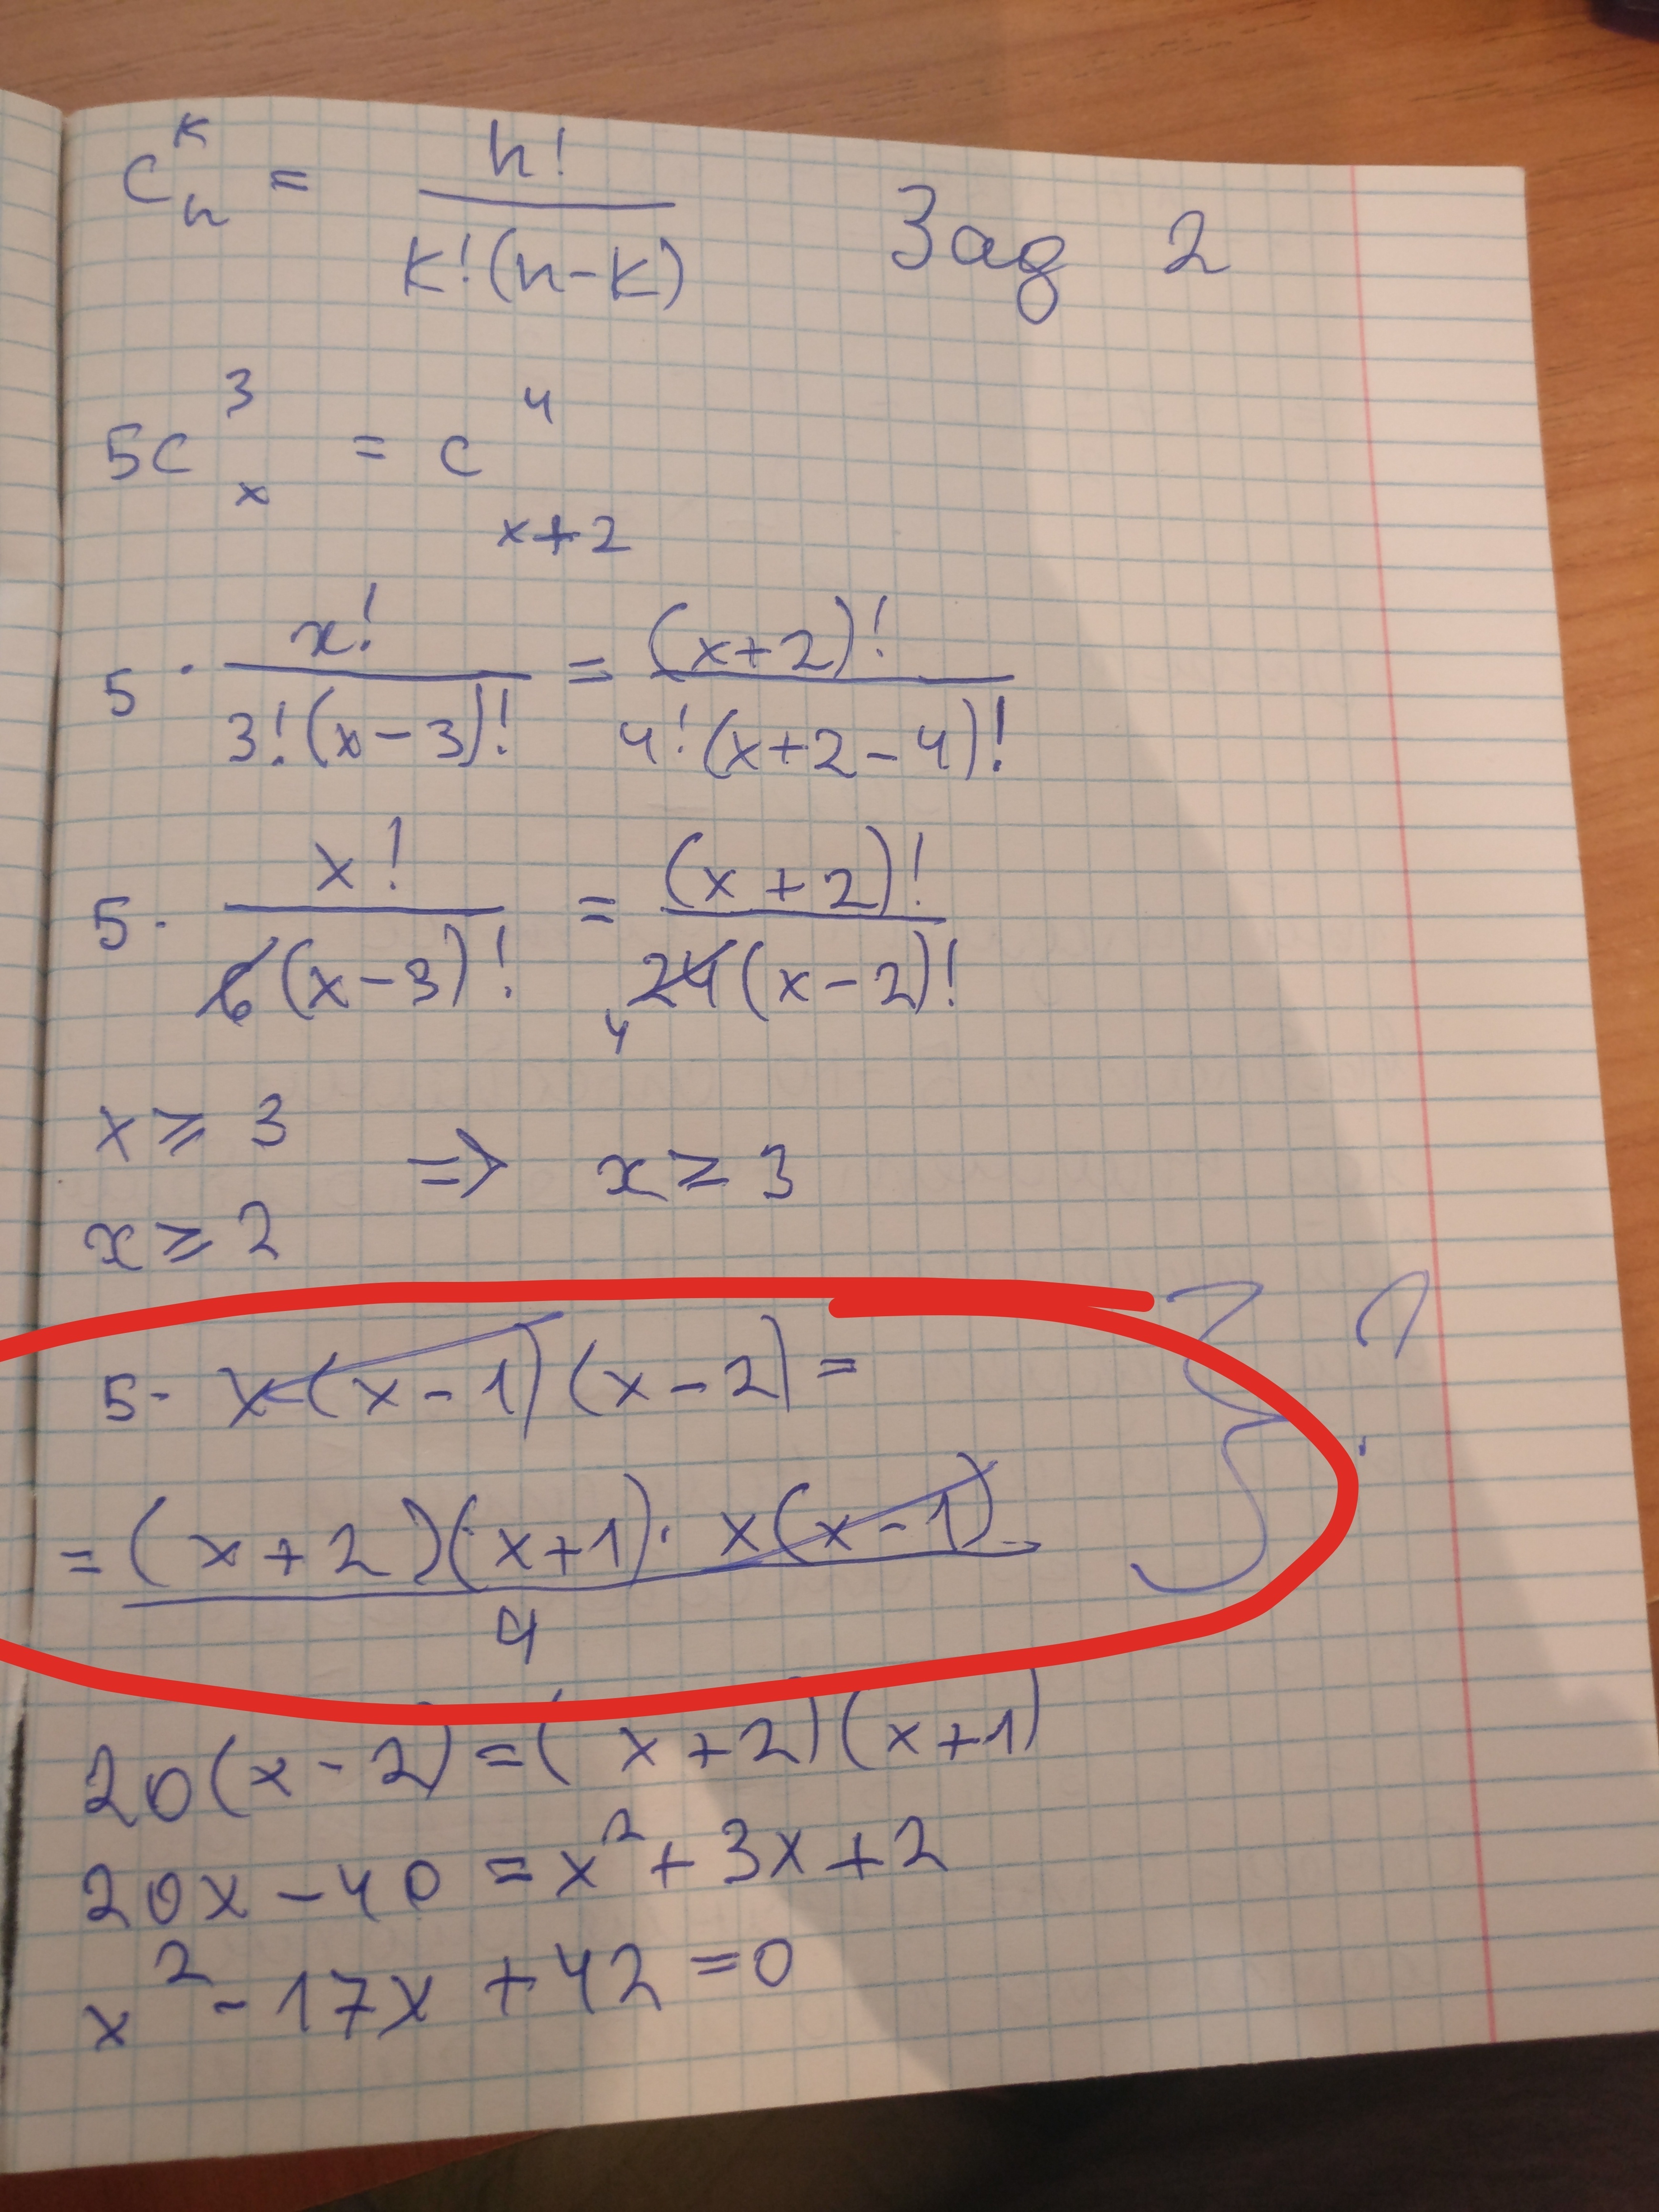 C_n^k = n! / k!(n-k)
Зад 2
5C_x^3 = C_{x+2}^4
5 · x! / 3!(x-3)! = (x+2)! / 4!(x+2-4)!
5 · x! / 6(x-3)! = (x+2)! / 24(x-2)!
4
x ⩾ 3
x ⩾ 2
=> x ≥ 3
5 · x(x-1)(x-2) =
= (x+2)(x+1) · x(x-1) / 4
} ?
20(x-2) = (x+2)(x+1)
20x - 40 = x² + 3x + 2
x² - 17x + 42 = 0